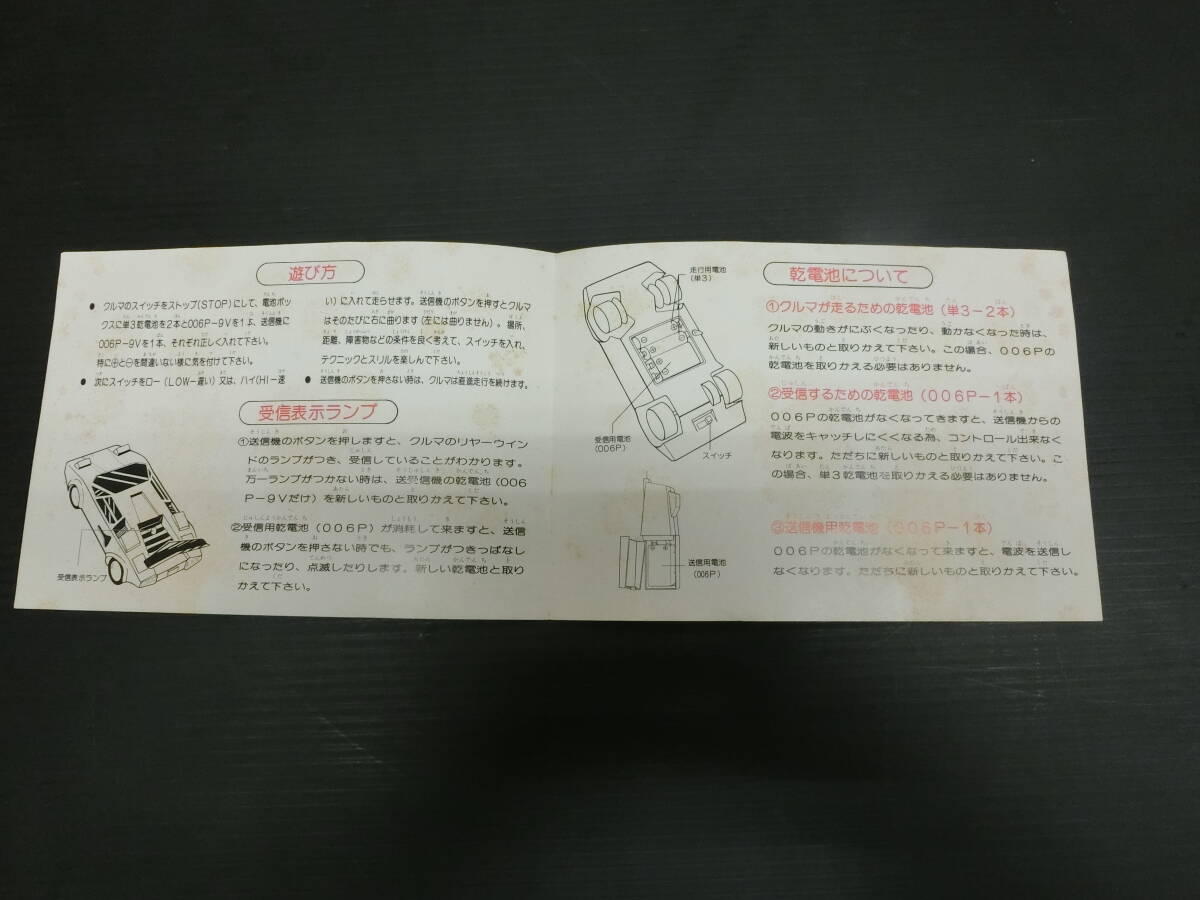 遊び方
● クルマのスイッチをストップ(STOP)にして、電池ボッ
クスに単3乾電池を2本と006P-9Vを1本、送信機に
006P-9Vを1本、それぞれ正しく入れて下さい。
特に⊕と⊖を間違いない様に気を付けて下さい。
● 次にスイッチをロー(LOW-遅い)又は、ハイ(HI-速
い)に入れて走らせます。送信機のボタンを押すとクルマ
はそのたびに右に曲ります(左には曲りません)。場所、
距離、障害物などの条件を良く考えて、スイッチを入れ、
テクニックとスリルを楽しんで下さい。
● 送信機のボタンを押さない時は、クルマは直進走行を続けます。
受信表示ランプ
①送信機のボタンを押しますと、クルマのリヤーウイン
ドのランプがつき、受信していることがわかります。
万一ランプがつかない時は、送受信機の乾電池(006
P-9Vだけ)を新しいものと取りかえて下さい。
②受信用乾電池(006P)が消耗して来ますと、送信
機のボタンを押さない時でも、ランプがつきっぱなし
になったり、点滅したりします。新しい乾電池と取り
かえて下さい。
受信表示ランプ
走行用電池
(単3)
受信用電池
(006P)
スイッチ
送信用電池
(006P)
乾電池について
①クルマが走るための乾電池(単3-2本)
クルマの動きがにぶくなったり、動かなくなった時は、
新しいものと取りかえて下さい。この場合、006Pの
乾電池を取りかえる必要はありません。
②受信するための乾電池(006P-1本)
006Pの乾電池がなくなってきますと、送信機からの
電波をキャッチしにくくなる為、コントロール出来なく
なります。ただちに新しいものと取りかえて下さい。こ
の場合、単3乾電池を取りかえる必要はありません。
③送信機用乾電池(006P-1本)
006Pの乾電池がなくなって来ますと、電波を送信し
なくなります。ただちに新しいものと取りかえて下さい。